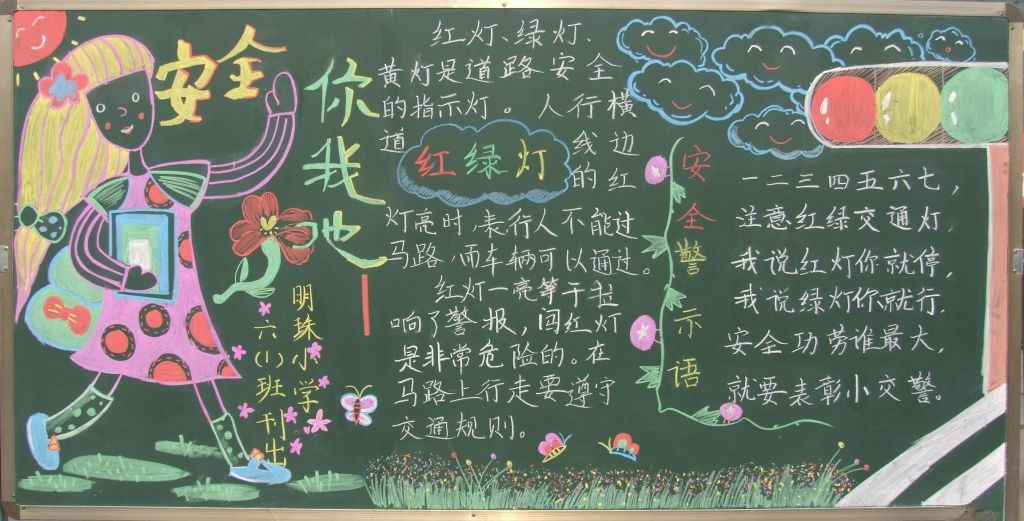 安全
你我他
明珠小学
六(1)班刊出
红灯、绿灯、
黄灯是道路安全
的指示灯。人行横
道 线边
红绿灯
的红
灯亮时，表行人不能过
马路，而车辆可以通过。
红灯一亮等于拉
响了警报，闯红灯
是非常危险的。在
马路上行走要遵守
交通规则。
安全警示语
一二三四五六七，
注意红绿交通灯，
我说红灯你就停，
我说绿灯你就行.
安全功劳谁最大，
就要表彰小交警。